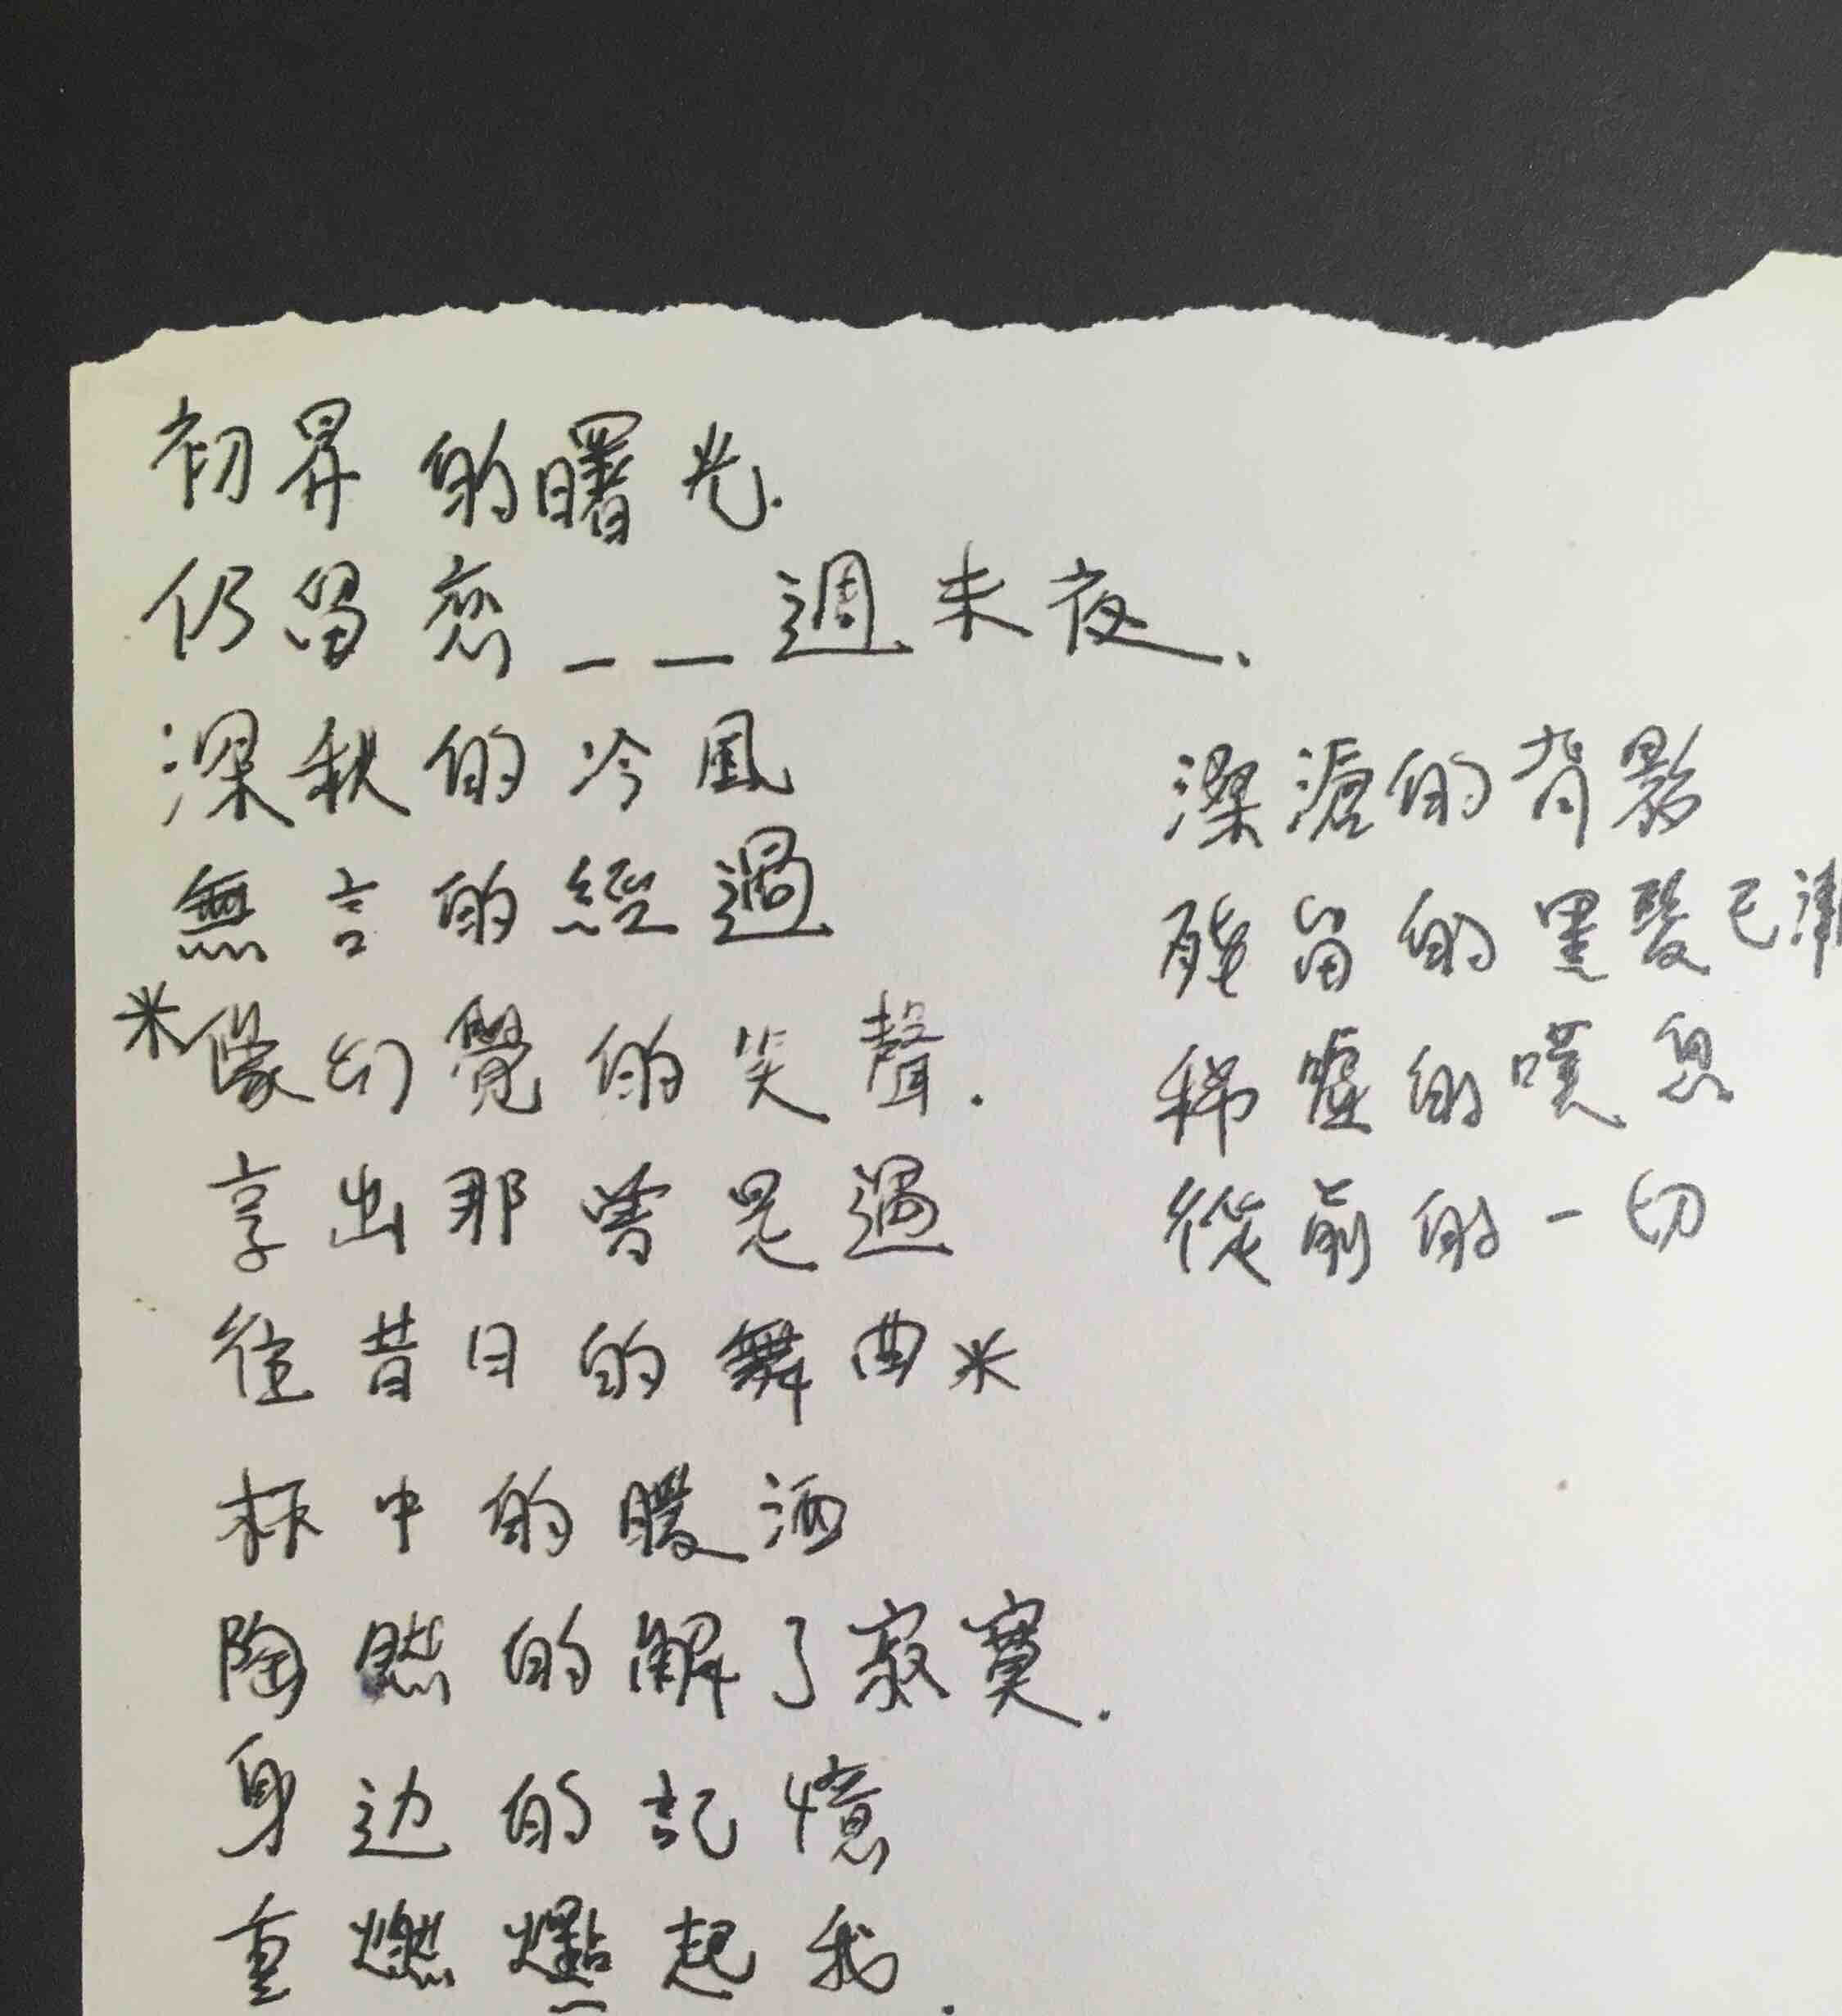 初昇的曙光.
仍留戀＿＿週末夜.
深秋的冷風
無言的經過
*像幻覺的笑聲.
享出那曾是過
往昔日的舞曲*
杯中的暖酒
陶然的解了寂寞.
身边的記憶
重燃點起我.
深滄的背影
殘留的黑髮已漸
稀噓的嘆息
從前的一切